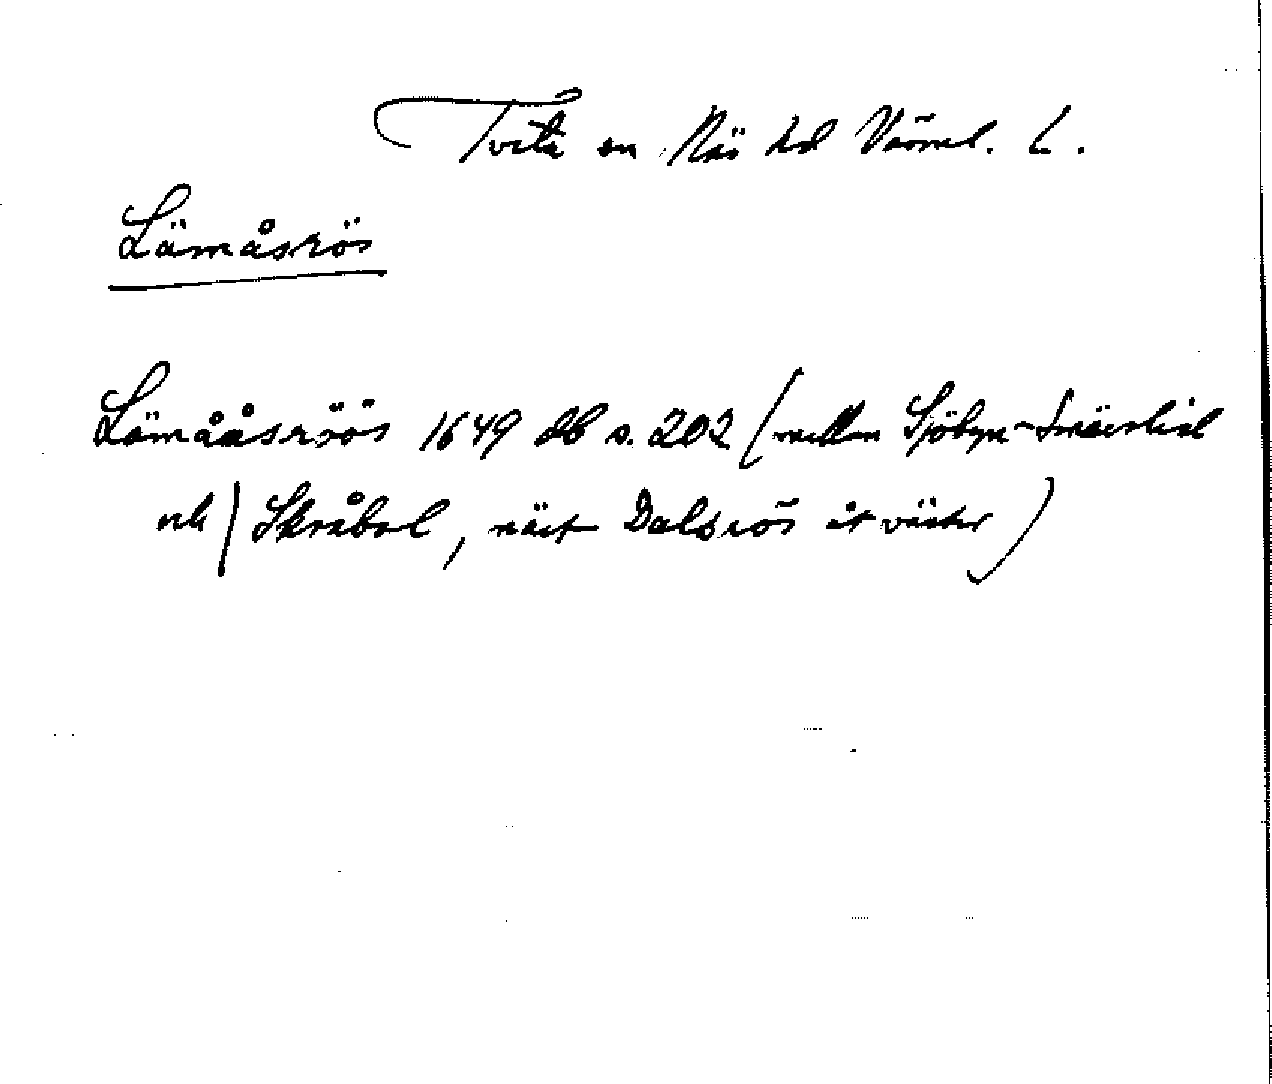 Tveta sn Näs hd Värml. L.
Lämåsrös
Lämååsröös 1649 db s. 202 (mellan Sjöbyn-
och Skråbol, näst Dalsrös åt väster)